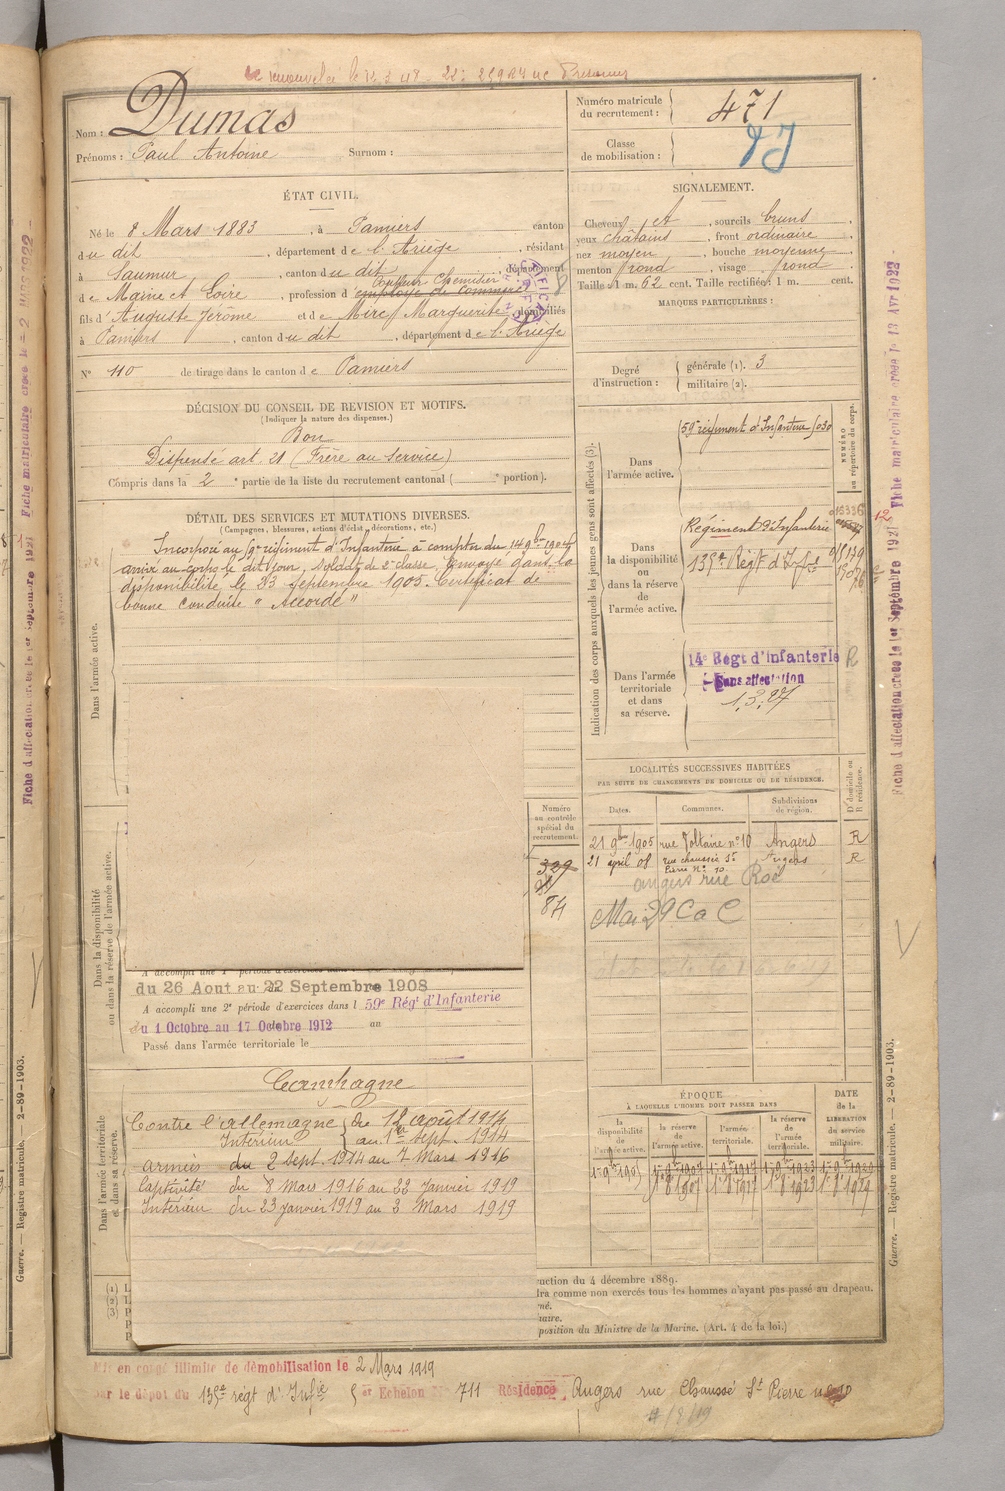 Nom : Dumas
Prénoms : Paul Antoine Surnom :
Numéro matricule du recrutement : 471
Classe de mobilisation :
ÉTAT CIVIL.
Né le 8 Mars 1883, à Pamiers canton
du dit, département de l'Ariège, résidant
à Saumur, canton du dit, département
de Maine et Loire, profession d'employé de commerce
Coiffeur Chemisier
fils d'Auguste Jérôme et de Mirc Marguerite domiciliés
à Pamiers, canton du dit, département de l'Ariège
N° 110 de tirage dans le canton de Pamiers
SIGNALEMENT.
Cheveux et, sourcils bruns
yeux châtains, front ordinaire
nez moyen, bouche moyenne
menton rond, visage rond
Taille 1 m. 62 cent. Taille rectifiée : 1 m. cent.
MARQUES PARTICULIÈRES :
Degré d'instruction : générale (1). 3
militaire (2).
DÉCISION DU CONSEIL DE REVISION ET MOTIFS.
(Indiquer la nature des dispenses.)
Bon
Dispensé art. 21 (Frère au Service)
Compris dans la 2e partie de la liste du recrutement cantonal ( e portion).
DÉTAIL DES SERVICES ET MUTATIONS DIVERSES.
(Campagnes, blessures, actions d'éclat, décorations, etc.)
Incorporé au 59e régiment d'Infanterie à compter du 14 9bre 1904
arrivé au corps le dit jour, Soldat de 2e classe, Envoyé dans la
disponibilité le 23 Septembre 1905. Certificat de
bonne conduite "Accordé"
Dans l'armée active.
Dans la disponibilité ou dans la réserve de l'armée active.
Dans l'armée territoriale et dans sa réserve.
Indication des corps auxquels les jeunes gens sont affectés (3).
NUMÉRO au répertoire du corps.
Dans l'armée active.
59e régiment d'Infanterie
Dans la disponibilité ou dans la réserve de l'armée active.
Régiment d'Infanterie
135e Régt d'Infie
Dans l'armée territoriale et dans sa réserve.
14e Régt d'Infanterie
Sans affectation
1.3.27
R
LOCALITÉS SUCCESSIVES HABITÉES
PAR SUITE DE CHANGEMENTS DE DOMICILE OU DE RÉSIDENCE.
D. domicile ou R. résidence.
Dates. Communes. Subdivisions de région.
21 9bre 1905 rue Voltaire n° 10 Angers R
21 april 08 rue chaussée St Pierre N° 10 Angers R
angers rue Roë
Mai 29 C a C
Numéro au contrôle spécial du recrutement.
329
87
A accompli une 1e période d'exercices dans
du 26 Aout au 22 Septembre 1908
A accompli une 2e période d'exercices dans l 59e Régt d'Infanterie
du 1 Octobre au 17 Octobre 1912 au
Passé dans l'armée territoriale le
Campagne
Contre l'allemagne
Intérieur de 12 août 1914
au 1er Sept. 1914
armées du 2 Sept 1914 au 7 Mars 1916
Captivité du 8 Mars 1916 au 22 Janvier 1919
Intérieur du 23 janvier 1919 au 2 Mars 1919
ÉPOQUE
À LAQUELLE L'HOMME DOIT PASSER DANS
la disponibilité de l'armée active.
la réserve de l'armée active.
l'armée territoriale.
la réserve de l'armée territoriale.
DATE de la LIBÉRATION du service militaire.
uction du 4 décembre 1889.
dra comme non exercés tous les hommes n'ayant pas passé au drapeau.
né.
naire.
position du Ministre de la Marine. (Art. 4 de la loi.)
en congé illimité de démobilisation le 2 Mars 1919
par le dépôt du 135e régt d'Infie Échelon N° 711 Résidence Angers rue Chaussé St Pierre n° 10
Guerre. — Registre matricule. — 2-89-1903.
Guerre. — Registre matricule. — 2-89-1903.
Fiche d'affectation créée le 1er Septembre 1921
Fiche matriculaire créée le 13 Avr 1922
Fiche d'affectation créée le 1er Septembre 1921
Fiche matriculaire créée le